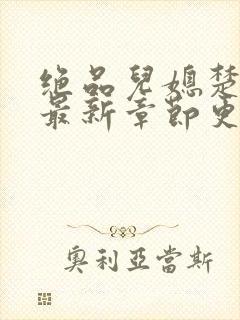 绝品兒媳楚
最新章節更
奧利亞當斯